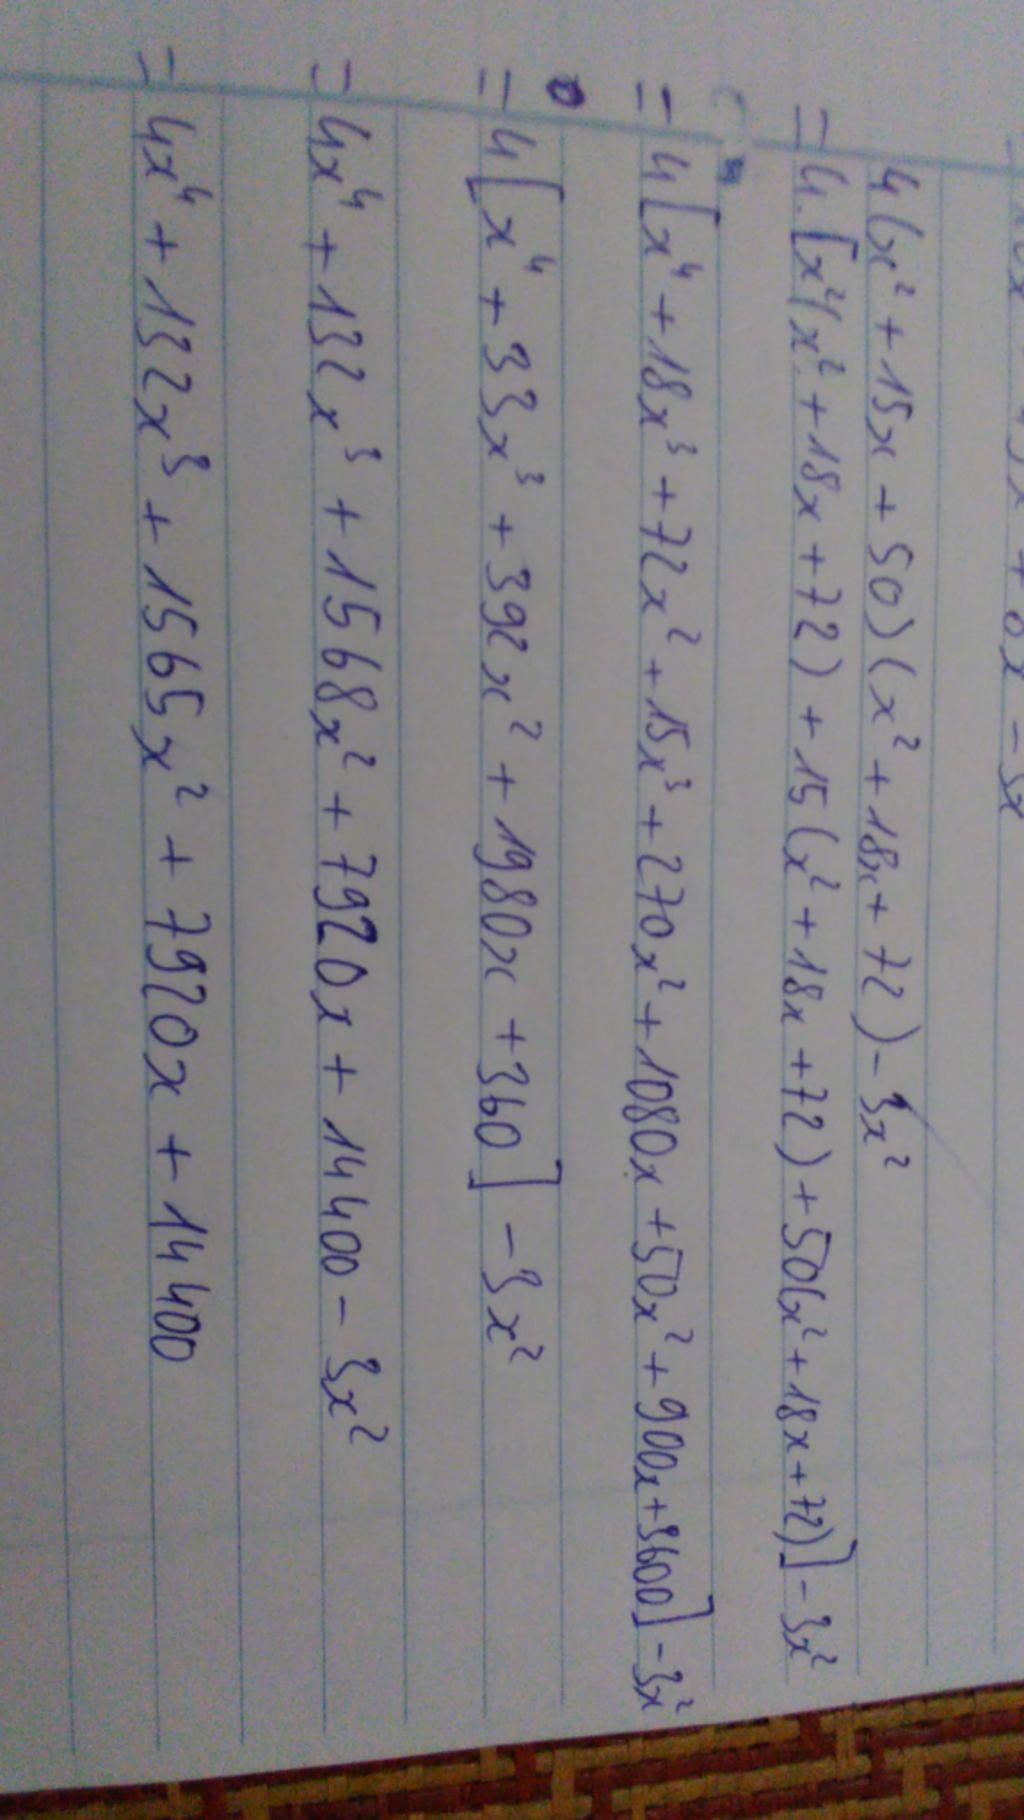 4(x² + 15x + 50)(x² + 18x + 72) - 3x²
= 4.[x²(x² + 18x + 72) + 15(x² + 18x + 72) + 50(x² + 18x + 72)] - 3x²
= 4[x⁴ + 18x³ + 72x² + 15x³ + 270x² + 1080x + 50x² + 900x + 3600] - 3x²
= 4[x⁴ + 33x³ + 392x² + 1980x + 360] - 3x²
= 4x⁴ + 132x³ + 1568x² + 7920x + 14400 - 3x²
= 4x⁴ + 132x³ + 1565x² + 7920x + 14400